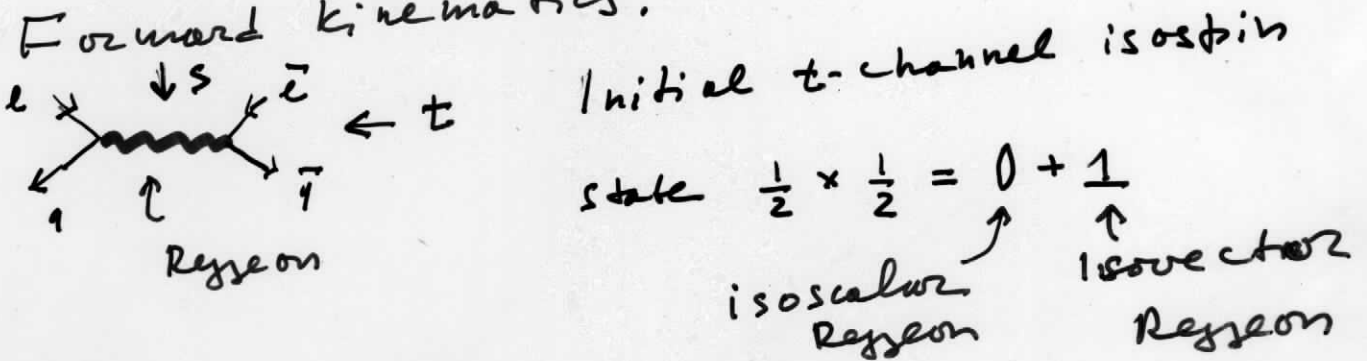 Forward kinematics.
↓ s
l ē ← t
q q̄
Reggeon
Initial t-channel isospin
state 1/2 × 1/2 = 0 + 1
isoscalar Reggeon
isovector Reggeon